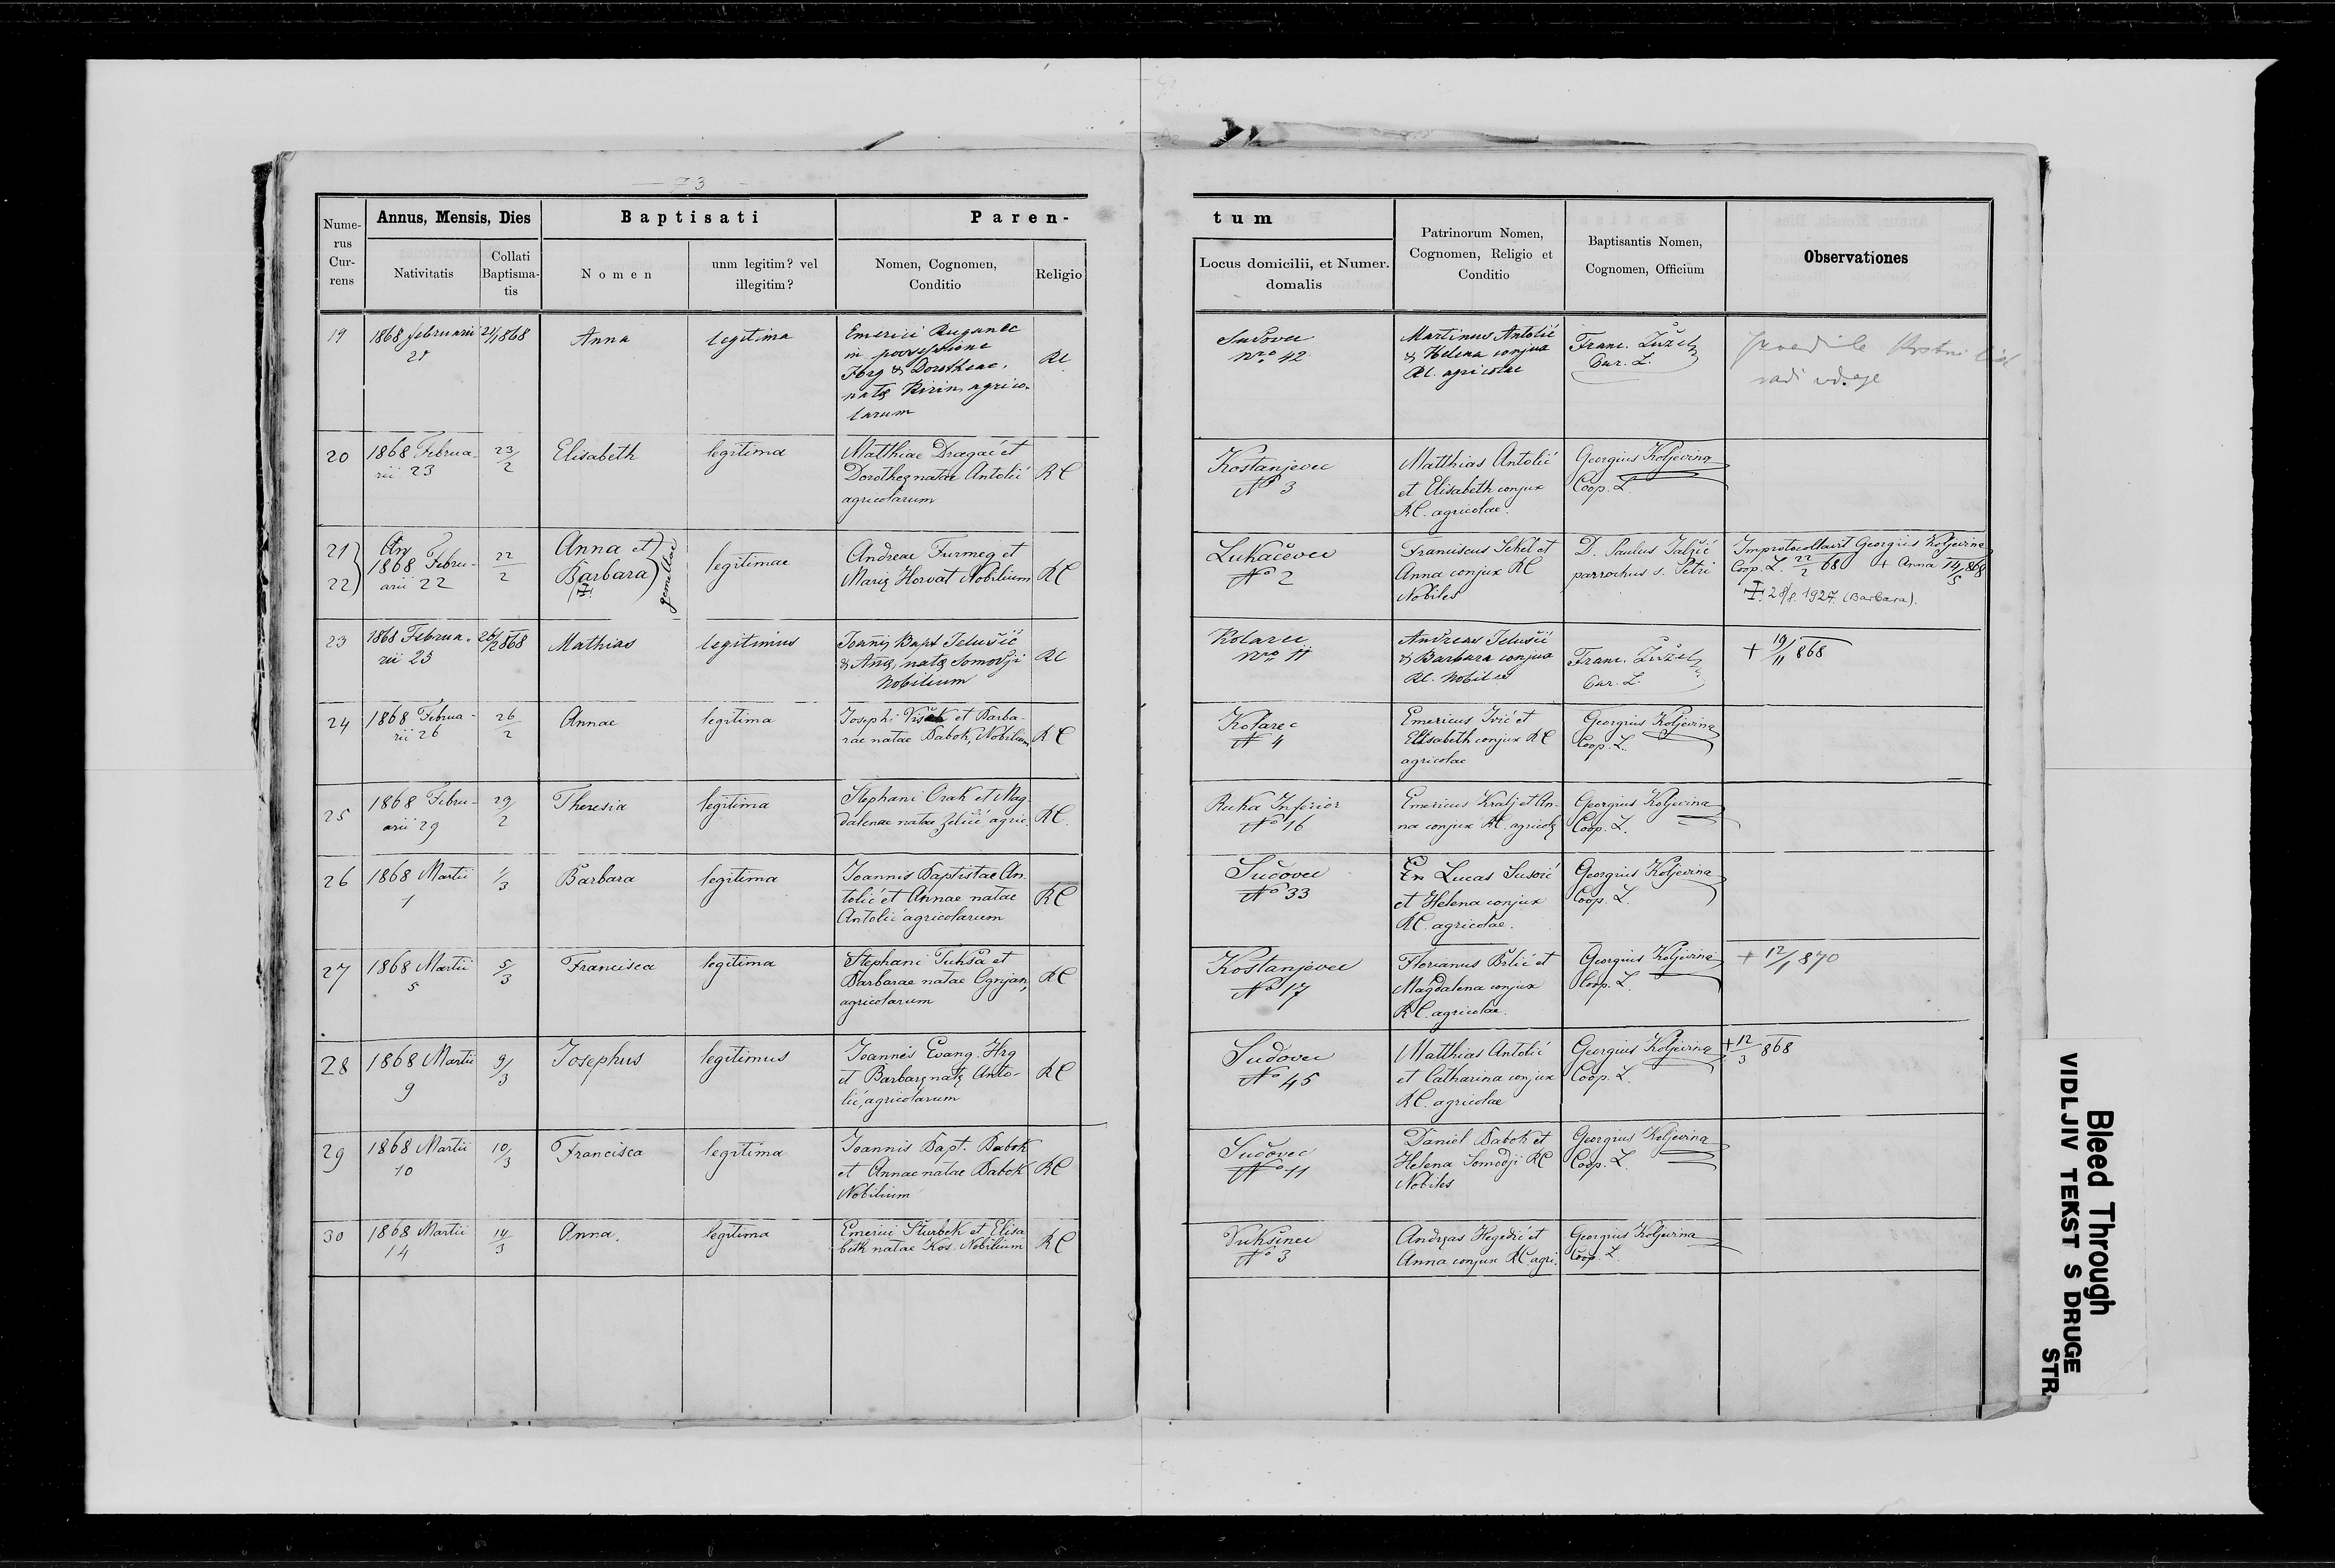 73
Nume-
rus
Cur-
rens
Annus, Mensis, Dies
Nativitatis
Collati
Baptisma-
tis
Baptisati
Nomen
unm legitim? vel
illegitim?
Paren-
Nomen, Cognomen,
Conditio
Religio
tum
Locus domicilii, et Numer.
domalis
Patrinorum Nomen,
Cognomen, Religio et
Conditio
Baptisantis Nomen,
Cognomen, Officium
Observationes
19
1868 februarii
21
Anna
legitima
Emerici
in possessione
& Dorotheae,
natę agrico-
larum
RC
Sudovec
Nro 42
Martinus Antolić
& Helena conjux
RC. agricolae
Franc. Žužel
Cur. L.
20
1868 Februa-
rii 23
23/2
Elisabeth
legitima
Matthiae Dragać et
Dorotheę natae Antolić
agricolarum
RC
Kostanjevec
No 3
Matthias Antolić
et Elisabeth conjux
RC. agricolae.
Georgius Koljevina
Coop. L.
21
22
1868 Febru-
arii 22
22/2
Anna et
Barbara
gemellae
legitimae
Andreae Furmeg et
Marię Horvat Nobilium
RC
Lukačevec
No 2
Franciscus Sekel et
Anna conjux RC
Nobiles
D. Paulus
parrochus s. Petri
Improtocollavit Georgius Koljevina
Coop. L. 22/2 68 + Anna 14/5 868
28/8. 1927. (Barbara).
23
1868 Februa-
rii 25
26/2 868
Mathias
legitimus
Joanis Bapt Jelušić
& Anę, natę Somodji
Nobilium
RC
Kolarec
Nro 11
Andreas Jelušić
& Barbara conjux
RC. Nobiles
Franc. Žužel
Cur. L.
+ 19/11 868
24
1868 Februa-
rii 26
26/2
Annae
legitima
Josephi et Barba-
rae natae Babok, Nobilium
RC
Kolarec
No 4
Emericus Ivić et
Elisabeth conjux RC
agricolae
Georgius Koljevina
Coop. L.
25
1868 Febru-
arii 29
29/2
Theresia
legitima
Stephani Orak et Mag-
dalenae natae Zelić agric.
RC.
Ruka Inferior
No 16
Emericus Kralj et An-
na conjux RC. agricolę
Georgius Koljevina
Coop. L.
26
1868 Martii
1
1/3
Barbara
legitima
Joannis Baptistae An-
tolić et Annae natae
Antolić agricolarum
RC
Sudovec
No 33
Lucas Susović
et Helena conjux
RC. agricolae.
Georgius Koljevina
Coop. L.
27
1868 Martii
5
5/3
Francisca
legitima
Stephani Tukša et
Barbarae natae Ognjan,
agricolarum
RC
Kostanjevec
No 17
Florianus Brlić et
Magdalena conjux
RC. agricolae.
Georgius Koljevina
Coop. L.
+ 12/1 870
28
1868 Martii
9
9/3
Josephus
legitimus
Joannis Evang. Hrg
et Barbarę natę Anto-
lić, agricolarum
RC
Sudovec
No 45
Matthias Antolić
et Catharina conjux
RC. agricolae
Georgius Koljevina
Coop. L.
+ 12/3 868
29
1868 Martii
10
10/3
Francisca
legitima
Joannis Bapt. Babok
et Annae natae Babok
Nobilium
RC
Sudovec
No 11
Daniel Babok et
Helena Somodji RC
Nobiles
Georgius Koljevina
Coop. L.
30
1868 Martii
14
14/3
Anna.
legitima
Emerici Šturbek et Elisa
beth natae Kos. Nobilium
RC
Vukšinec
No 3
Andręas Hegedić et
Anna conjux RC agri.
Georgius Koljevina
Coop. L.
Bleed Through
VIDLJIV TEKST S DRUGE
STR